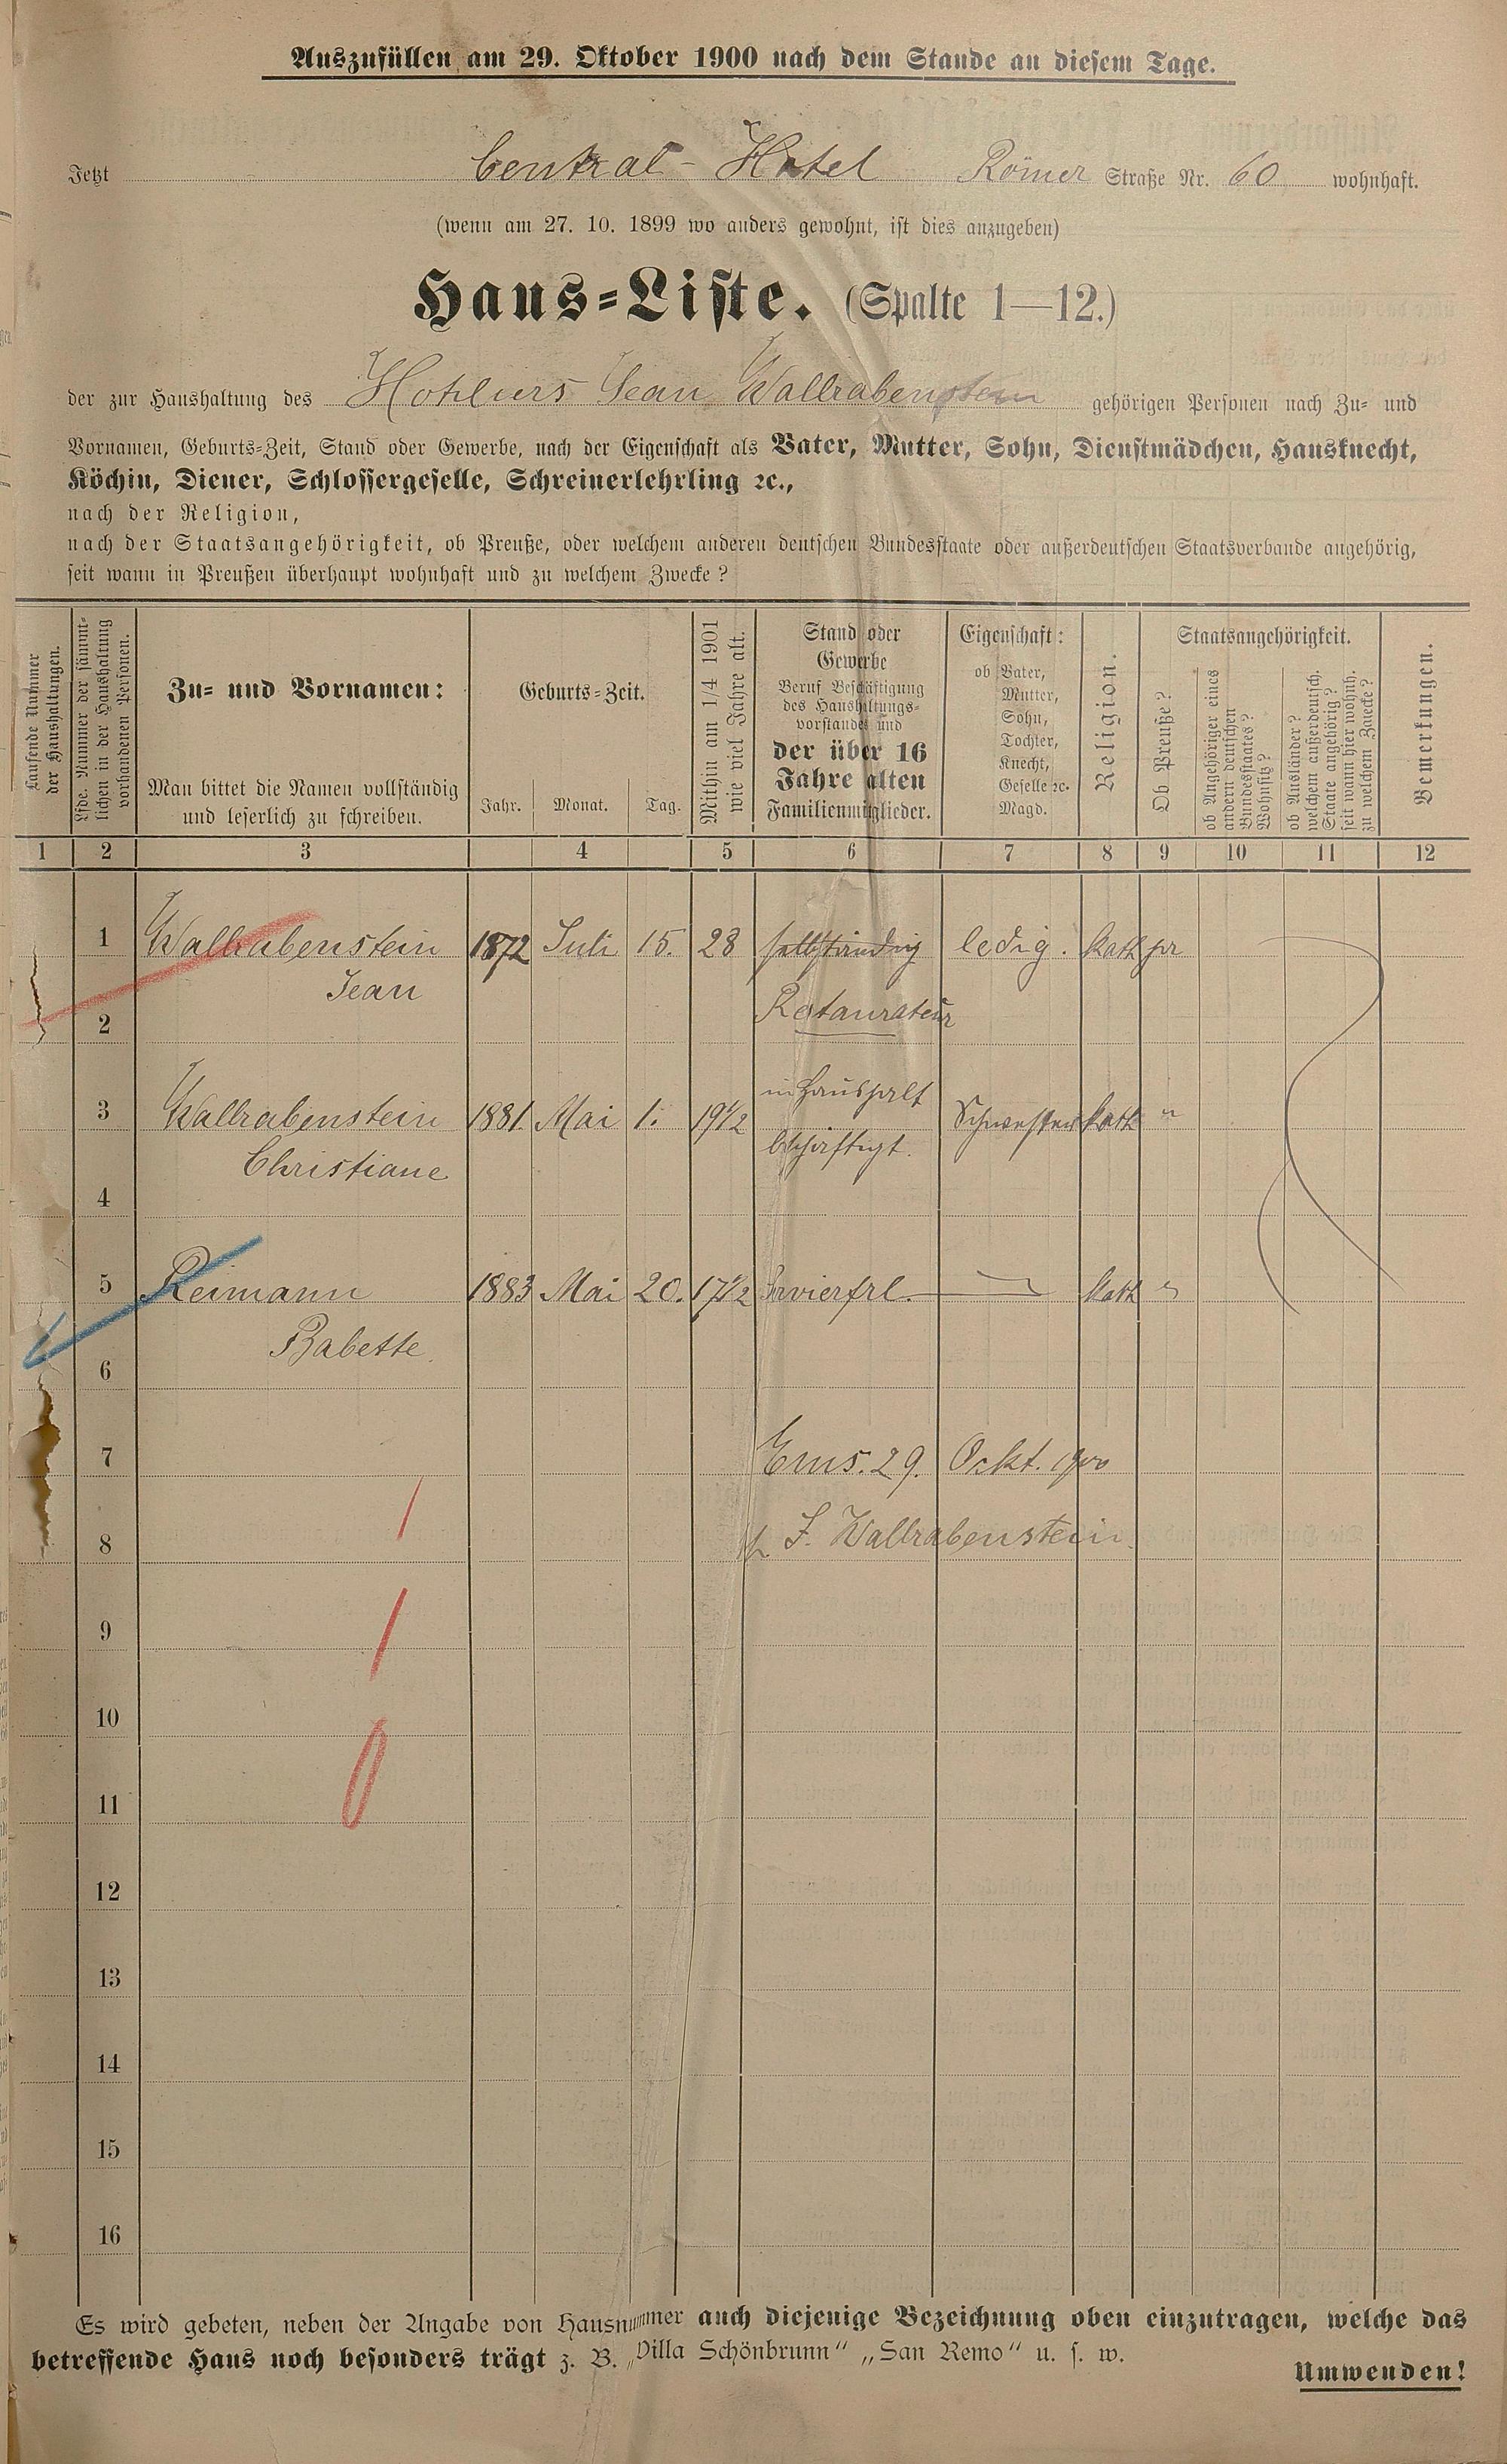 Auszufüllen am 29. Oktober 1900 nach dem Stande an diesem Tage.
Jetzt Central-Hotel Römer Straße Nr. 60 wohnhaft.
(wenn am 27. 10. 1899 wo anders gewohnt, ist dies anzugeben)
Haus-Liste. (Spalte 1—12.)
der zur Haushaltung des Hoteliers Jean Wallrabenstein gehörigen Personen nach Zu- und
Vornamen, Geburts-Zeit, Stand oder Gewerbe, nach der Eigenschaft als Vater, Mutter, Sohn, Dienstmädchen, Hausknecht,
Köchin, Diener, Schlossergeselle, Schreinerlehrling ꝛc.,
nach der Religion,
nach der Staatsangehörigkeit, ob Preuße, oder welchem anderen deutschen Bundesstaate oder außerdeutschen Staatsverbande angehörig,
seit wann in Preußen überhaupt wohnhaft und zu welchem Zwecke?
Laufende Nummer
der Haushaltungen.
Lfde. Nummer der sämmt-
lichen in der Haushaltung
vorhandenen Personen.
Zu- und Vornamen:
Man bittet die Namen vollständig
und leserlich zu schreiben.
Geburts-Zeit.
Jahr. Monat. Tag.
Mithin am 1/4 1901
wie viel Jahre alt.
Stand oder
Gewerbe
Beruf Beschäftigung
des Haushaltungs-
vorstandes und
der über 16
Jahre alten
Familienmitglieder.
Eigenschaft:
ob Vater,
Mutter,
Sohn,
Tochter,
Knecht,
Geselle ꝛc.
Magd.
Religion.
Staatsangehörigkeit.
Ob Preuße?
ob Angehöriger eines
andern deutschen
Bundesstaates?
Wohnsitz?
ob Ausländer?
welchem außerdeutsch.
Staate angehörig?
seit wann hier wohnh.
zu welchem Zwecke?
Bemerkungen.
1 2 3 4 5 6 7 8 9 10 11 12
1 Wallrabenstein 1872 Juli 15. 28 selbständig ledig. kath pr
Jean
2 Restaurateur
in Haushalt
3 Wallrabenstein 1881. Mai 1. 19 1/2 Schwester kath "
Christiane beschäftigt.
4
5 Reimann 1883 Mai 20. 17 1/2 Servierfrl. kath "
Babette
6
7 Ems. 29. Ockt. 1900
8 J. Wallrabenstein.
9
10
11
12
13
14
15
16
Es wird gebeten, neben der Angabe von Hausnummer auch diejenige Bezeichnung oben einzutragen, welche das
betreffende Haus noch besonders trägt z. B. „Villa Schönbrunn“ „San Remo“ u. s. w.
Umwenden!